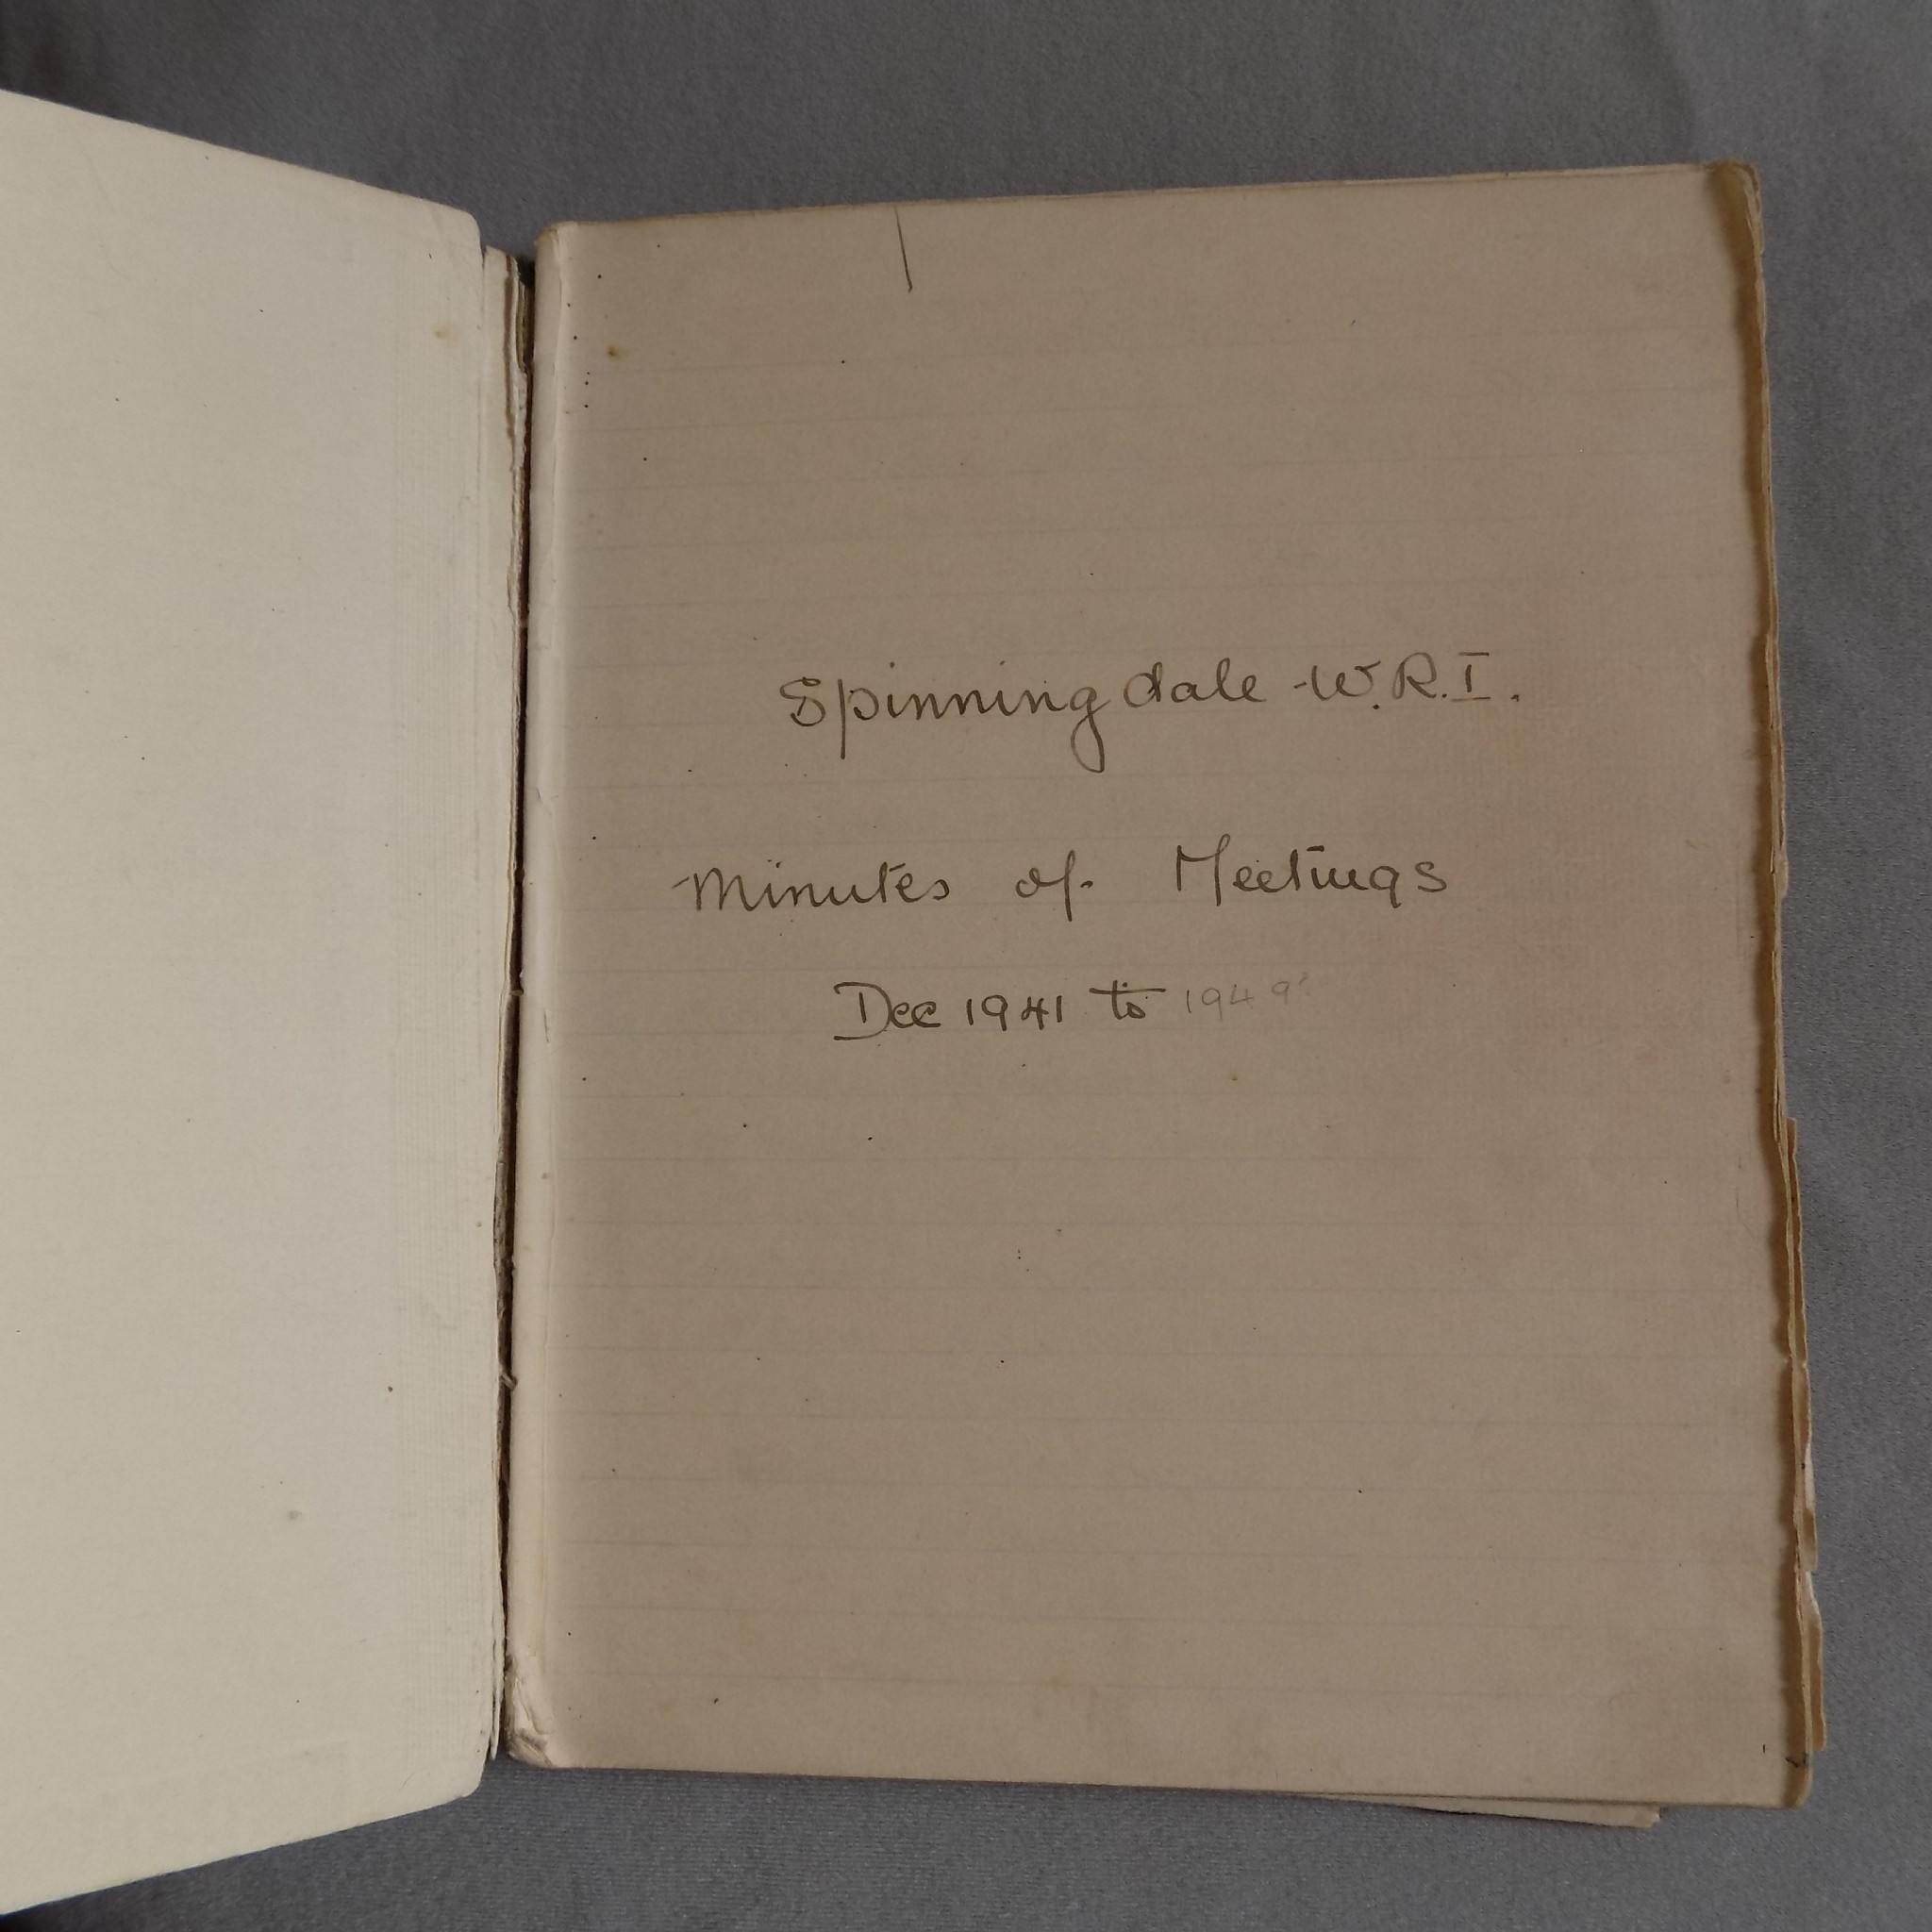 Spinningdale W.R.I.
Minutes of Meetings
Dec 1941 to 1949